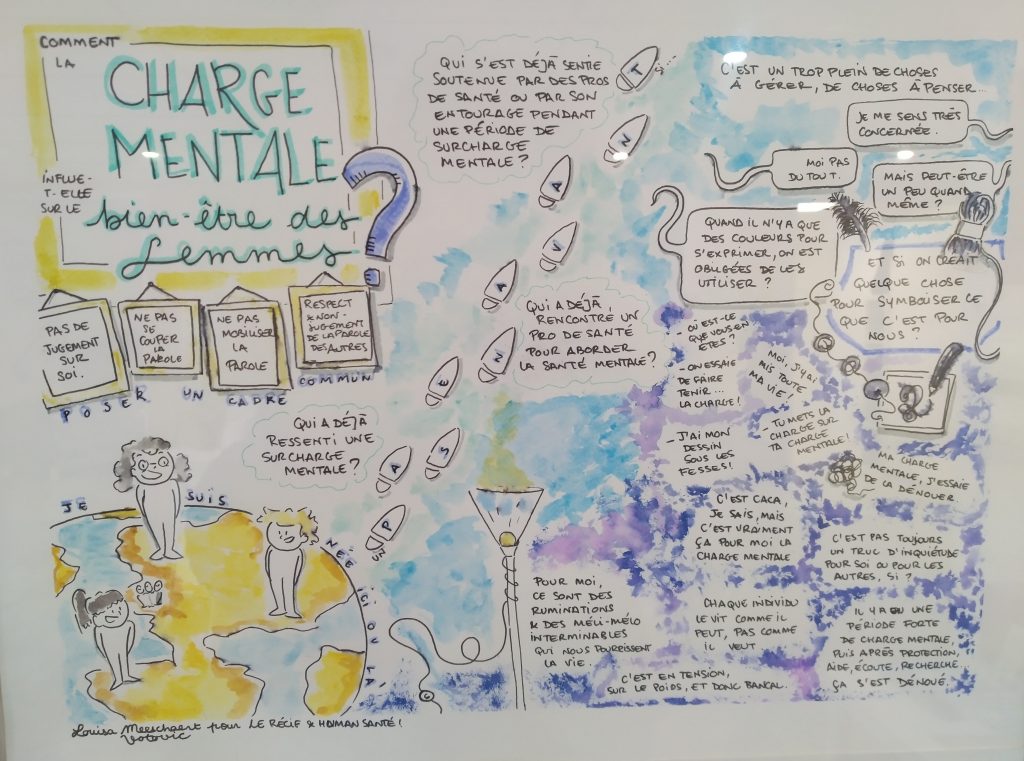 COMMENT
LA
CHARGE
MENTALE
INFLUE-
T-ELLE
SUR LE
bien-être des
femmes
?
PAS DE
JUGEMENT
SUR
SOI.
NE PAS
SE
COUPER
LA
PAROLE
NE PAS
MOBILISER
LA
PAROLE
RESPECT
& NON-
JUGEMENT
DE LA PAROLE
DES AUTRES
POSER UN CADRE COMMUN
QUI A DÉJÀ
RESSENTI UNE
SURCHARGE
MENTALE?
JE SUIS NÉE ICI OU LÀ
UN PAS EN AVANT
QUI S'EST DÉJÀ SENTIE
SOUTENUE PAR DES PROS
DE SANTÉ OU PAR SON
ENTOURAGE PENDANT
UNE PÉRIODE DE
SURCHARGE
MENTALE?
QUI A DÉJÀ
RENCONTRÉ UN
PRO DE SANTÉ
POUR ABORDER
LA SANTÉ MENTALE?
C'EST UN TROP PLEIN DE CHOSES
À GÉRER, DE CHOSES À PENSER...
JE ME SENS TRÈS
CONCERNÉE.
MOI PAS
DU TOUT.
MAIS PEUT-ÊTRE
UN PEU QUAND
MÊME?
QUAND IL N'Y A QUE
DES COULEURS POUR
S'EXPRIMER, ON EST
OBLIGÉES DE LES
UTILISER?
ET SI ON CRÉAIT
QUELQUE CHOSE
POUR SYMBOLISER CE
QUE C'EST POUR
NOUS?
- OÙ EST-CE
QUE VOUS EN
ÊTES?
- ON ESSAIE
DE FAIRE
TENIR...
LA CHARGE!
MOI, J'Y AI
MIS TOUTE
MA VIE!
- J'AI MON
DESSIN
SOUS LES
FESSES!
- TU METS LA
CHARGE SUR
TA CHARGE
MENTALE!
MA CHARGE
MENTALE, J'ESSAIE
DE LA DÉNOUER.
C'EST CACA,
JE SAIS, MAIS
C'EST VRAIMENT
ÇA POUR MOI LA
CHARGE MENTALE
C'EST PAS TOUJOURS
UN TRUC D'INQUIÉTUDE
POUR SOI OU POUR LES
AUTRES, SI?
POUR MOI,
CE SONT DES
RUMINATIONS
& DES MÉLI-MÉLO
INTERMINABLES
QUI NOUS POURRISSENT
LA VIE.
CHAQUE INDIVIDU
LE VIT COMME IL
PEUT, PAS COMME
IL VEUT
IL Y A EU UNE
PÉRIODE FORTE
DE CHARGE MENTALE,
PUIS APRÈS PROTECTION,
AIDE, ÉCOUTE, RECHERCHE...
ÇA S'EST DÉNOUÉ.
C'EST EN TENSION,
SUR LE POIDS, ET DONC BANCAL.
Louisa Meeschaert pour LE RÉCIF & HOMAN SANTÉ!
Votovic